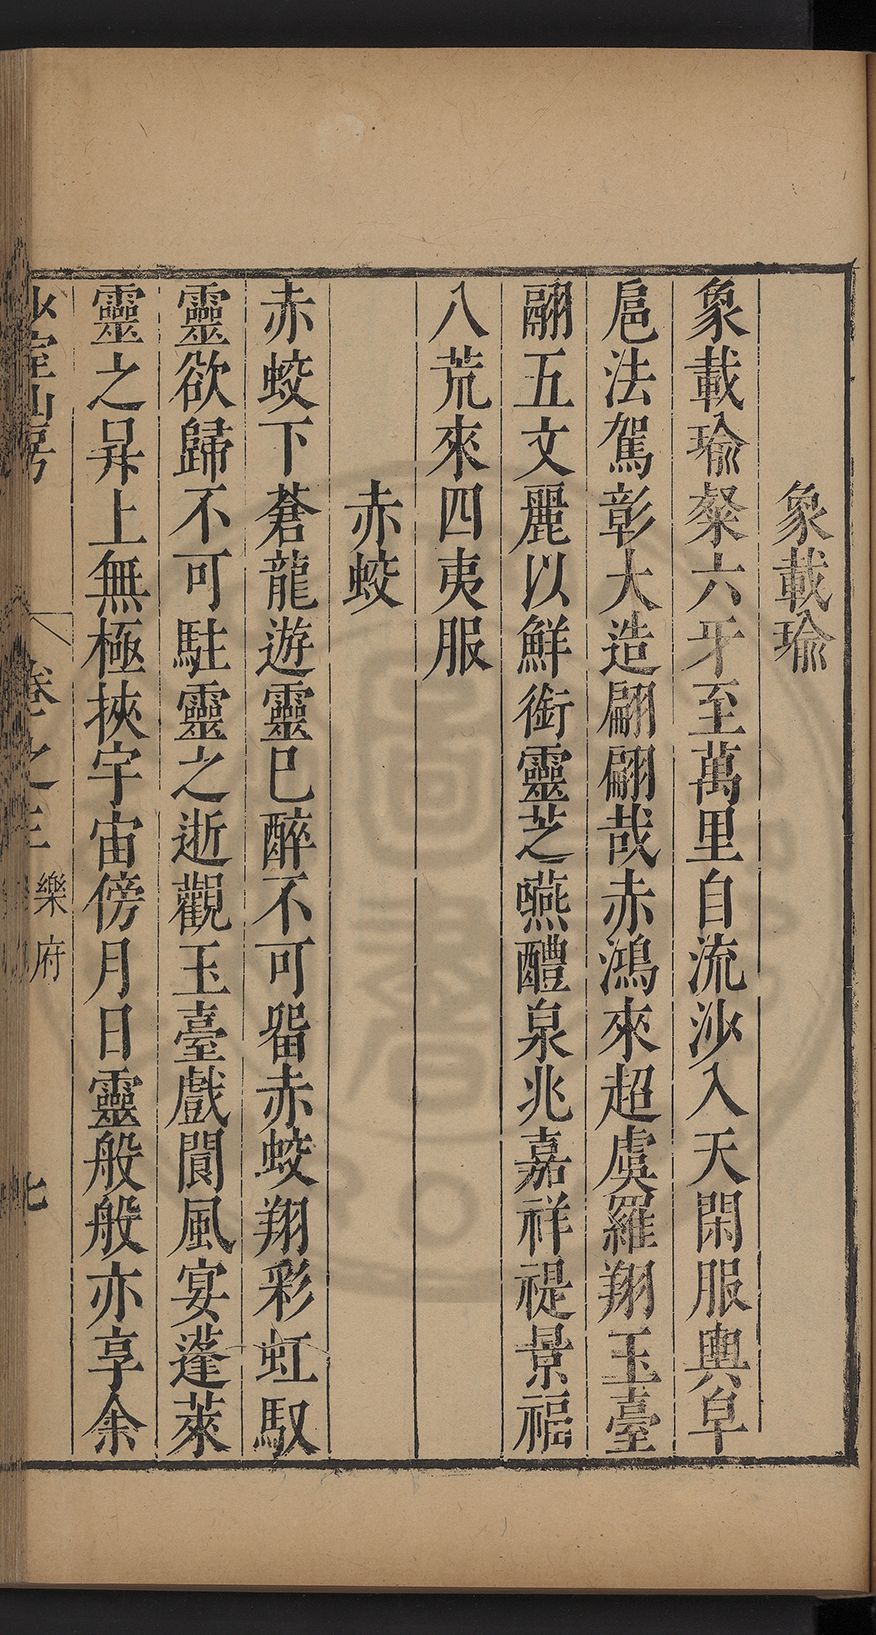 象載瑜
象載瑜粲六牙至萬里自流沙入天閑服輿皁
扈法駕彰大造翩翩哉赤鴻來超虞羅翔玉臺
翩五文麗以鮮銜靈芝嚥醴泉兆嘉祥禔景福
八荒來四夷服
赤蛟
赤蛟下蒼龍遊靈已醉不可畱赤蛟翔彩虹馭
靈欲歸不可駐靈之逝觀玉臺戲閬風宴蓬萊
靈之昇上無極挾宇宙傍月日靈般般亦享余
少室山房 卷之三 樂府 七